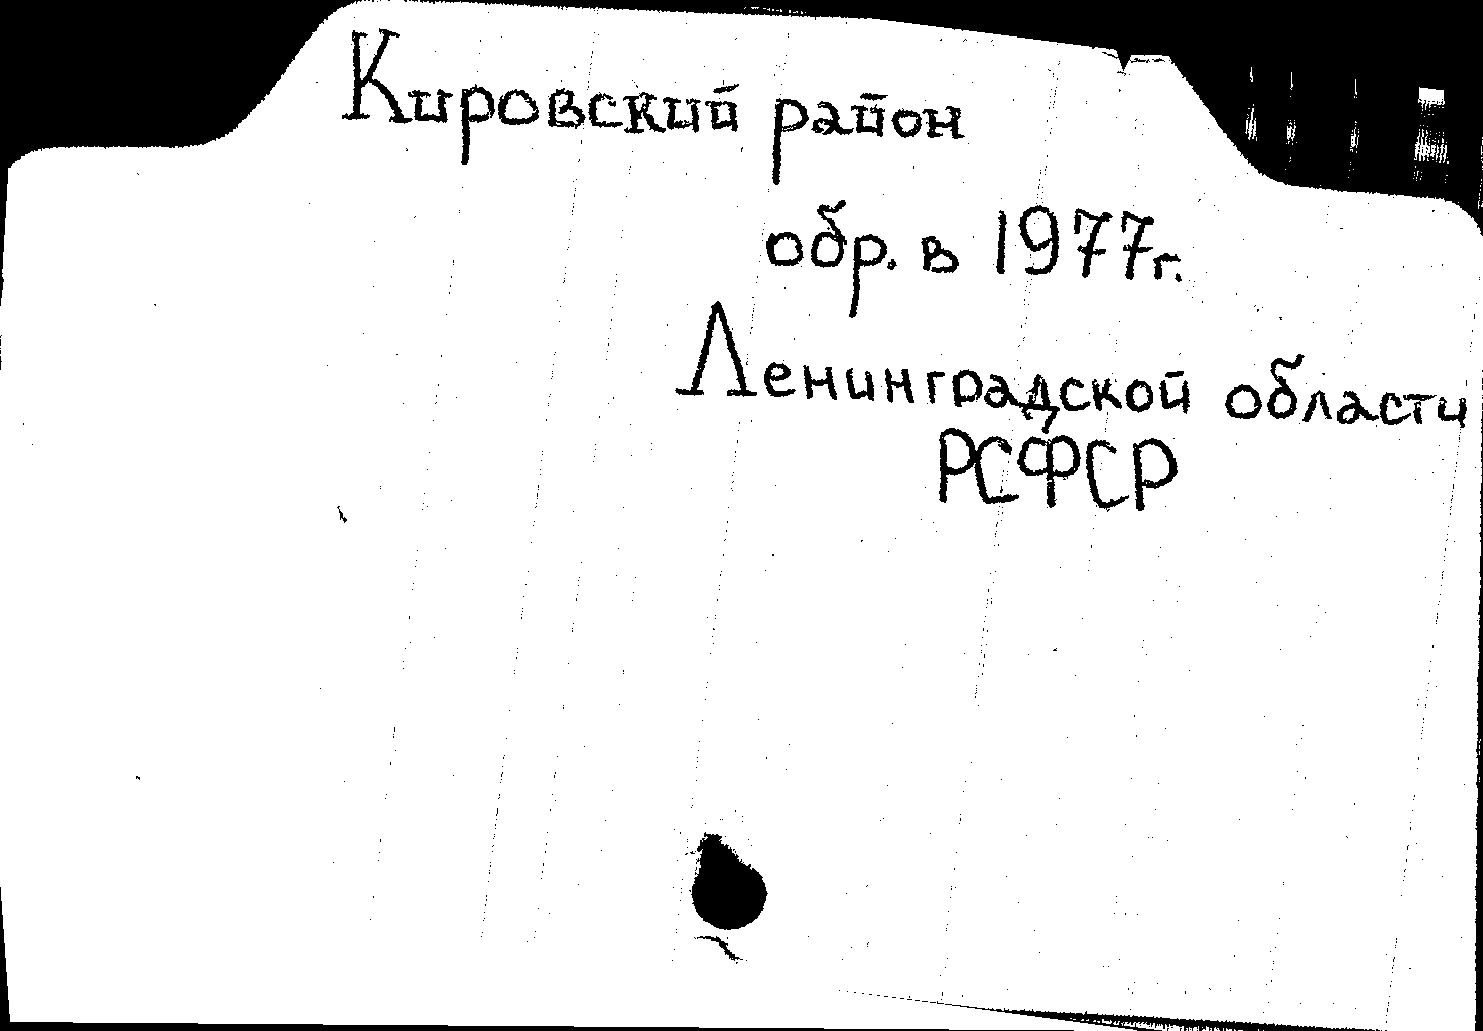 Кировский район
обр. в 1977г.
Ленинградской области
РСФСР